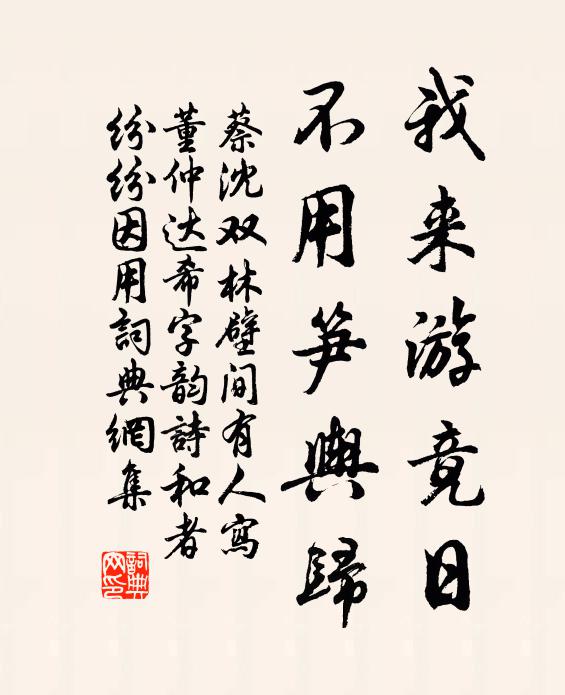 我来游竟日
不用笋輿歸
蔡沈双林壁间有人寫
董仲达希字韵詩和者
纷纷因用詞典網集
詞典
网印